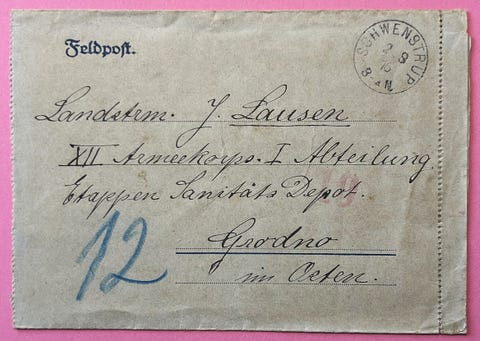 Feldpost.
SCHWENSTRUP
2 8
16
8-11 V
Landstrm. J. Lausen
XII Armeekorps. I Abteilung
Etappen Sanitäts Depot.
Grodno
im Osten.
12